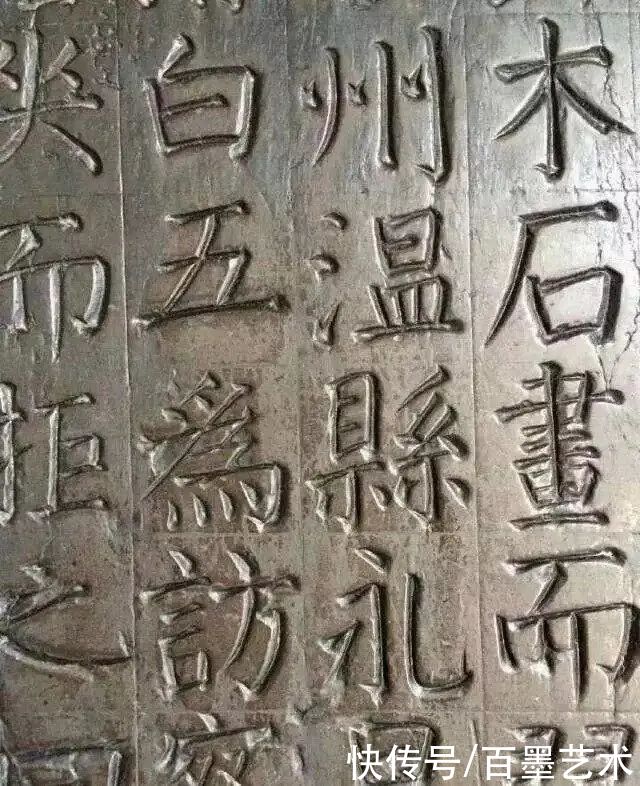 木石畫而
州温縣礼
白五為訪
而拒之
快传号/百墨艺术